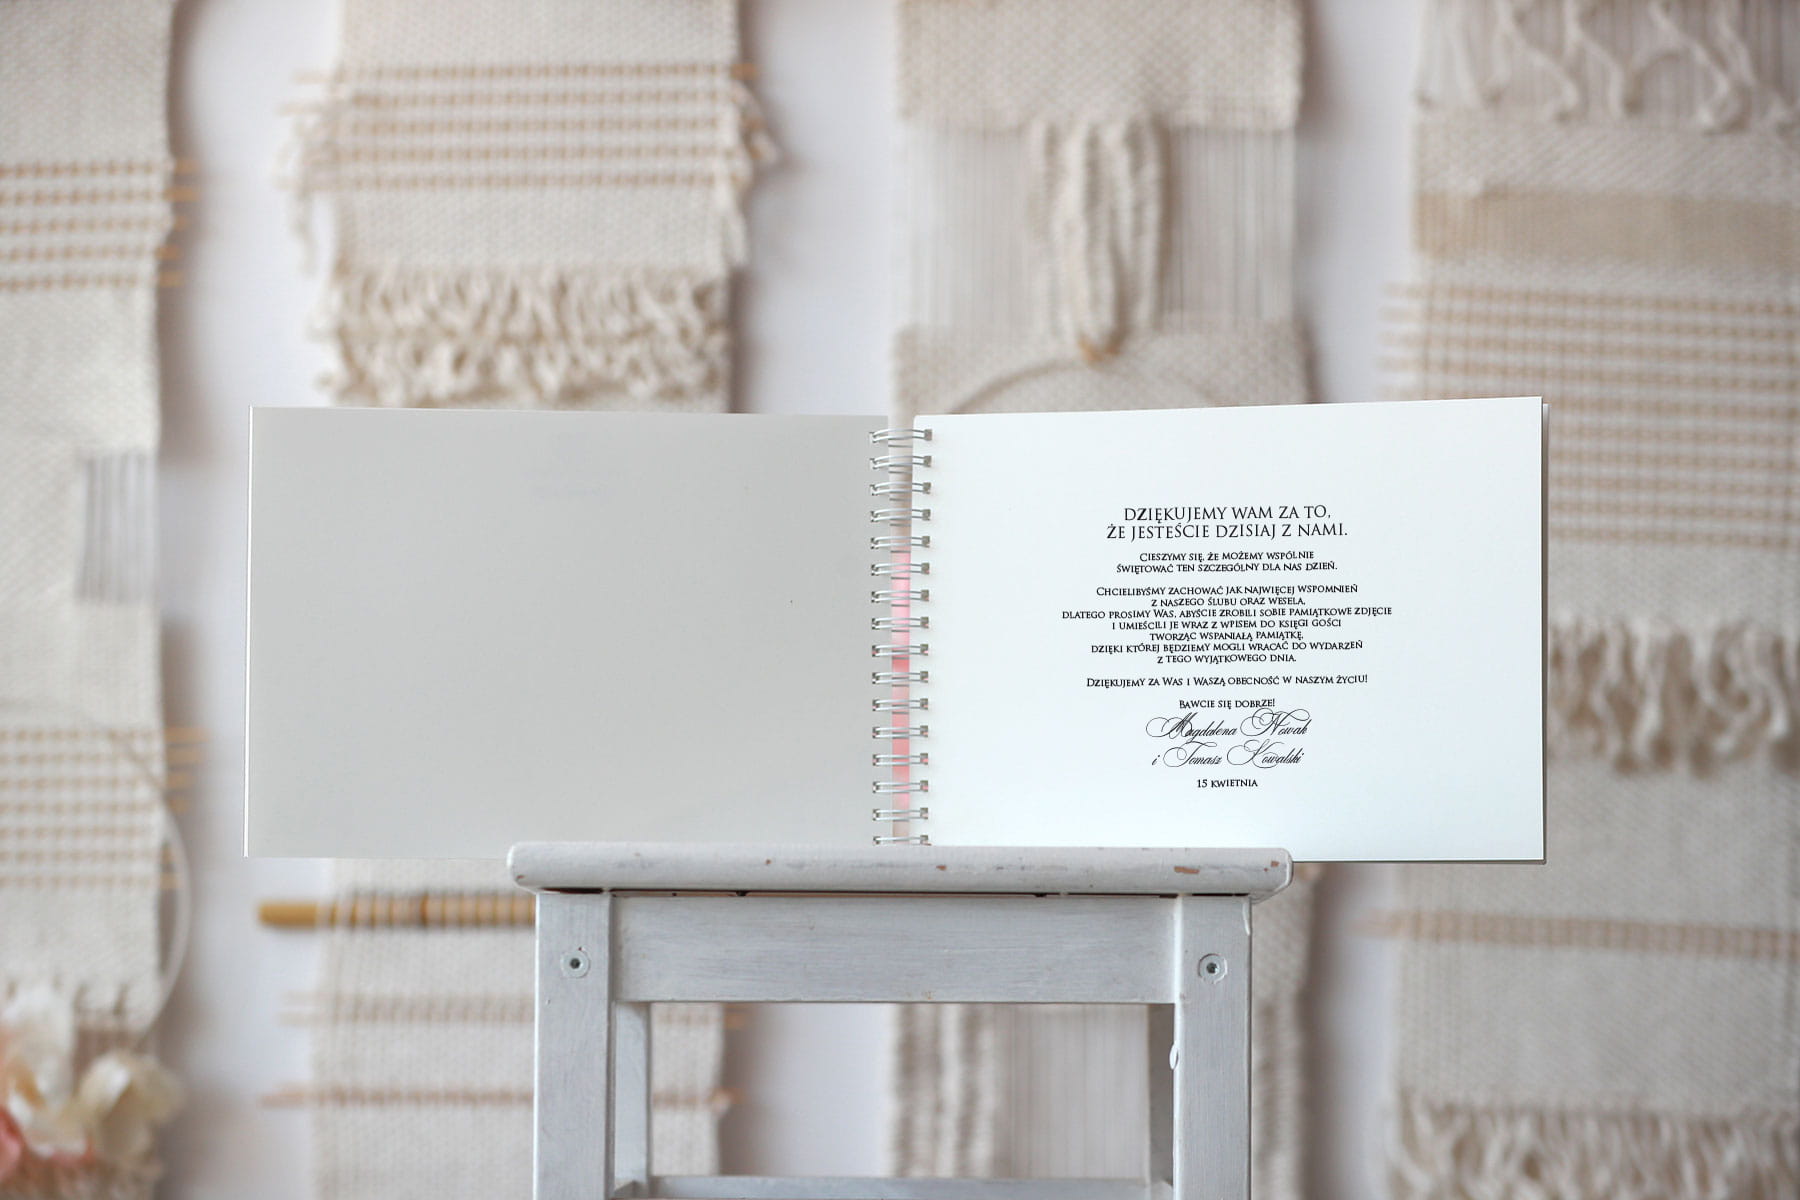 DZIĘKUJEMY WAM ZA TO,
ŻE JESTEŚCIE DZISIAJ Z NAMI.
CIESZYMY SIĘ, ŻE MOŻEMY WSPÓLNIE
ŚWIĘTOWAĆ TEN SZCZEGÓLNY DLA NAS DZIEŃ.
CHCIELIBYŚMY ZACHOWAĆ JAK NAJWIĘCEJ WSPOMNIEŃ
Z NASZEGO ŚLUBU ORAZ WESELA,
DLATEGO PROSIMY WAS, ABYŚCIE ZROBILI SOBIE PAMIĄTKOWE ZDJĘCIE
I UMIEŚCILI JE WRAZ Z WPISEM DO KSIĘGI GOŚCI
TWORZĄC WSPANIAŁĄ PAMIĄTKĘ,
DZIĘKI KTÓREJ BĘDZIEMY MOGLI WRACAĆ DO WYDARZEŃ
Z TEGO WYJĄTKOWEGO DNIA.
DZIĘKUJEMY ZA WAS I WASZĄ OBECNOŚĆ W NASZYM ŻYCIU!
BAWCIE SIĘ DOBRZE!
Magdalena Nowak
i Tomasz Kowalski
15 KWIETNIA